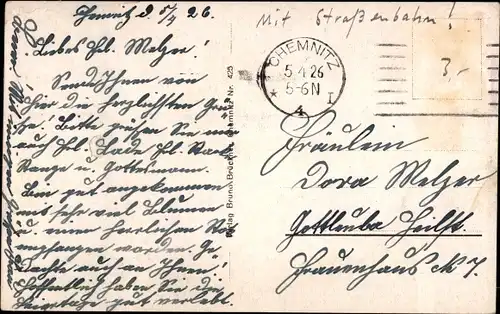 Chemnitz d. 5/4 26.
Mit Straßenbahn!
Liebes Frl. Melzer!
Send Ihnen von
hier die herzlichsten Grü-
ße! Bitte grüßen Sie mir
auch Frl. Lade, Frl.
Stange u. Gottesmann.
Bin gut angekommen
mit sehr viel Blumen
u. einen herrlichen
empfangen worden. Ge-
dachte auch an Ihnen!
Hoffentlich haben Sie die
Feiertage gut verlebt.
Verlag Bruno Brückner, Chemnitz Nr. 425
CHEMNITZ
5.4.26
5-6N
* 4 I
3,-
Fräulein
Dora Melzer
Gottleuba Heilst.
Frauenhaus N 7.